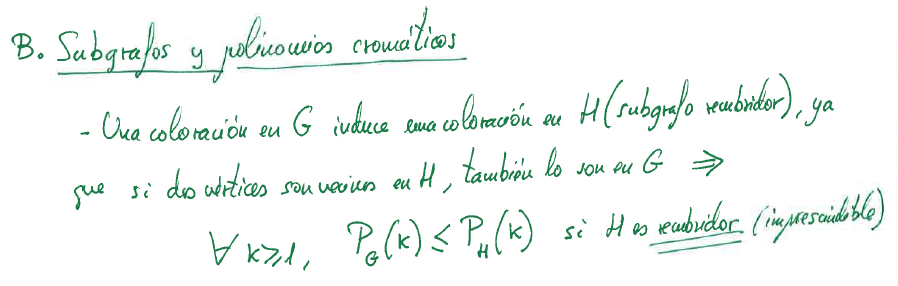 B. Subgrafos y polinomios cromáticos
- Una coloración en G induce una coloración en H (subgrafo recubridor), ya
que si dos vértices son vecinos en H, también lo son en G ⇒
∀ k≥1, P_G(k) ≤ P_H(k) si H es recubridor (imprescindible)